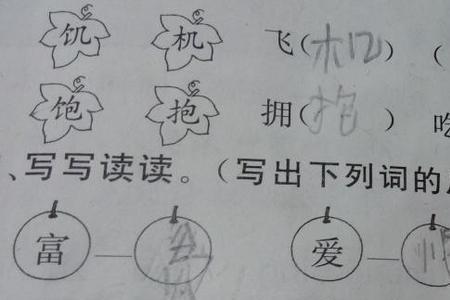 饥 机 飞(机) (
饱 抱 拥(抱) 吃
、写写读读。(写出下列词的
富 — 爱 —